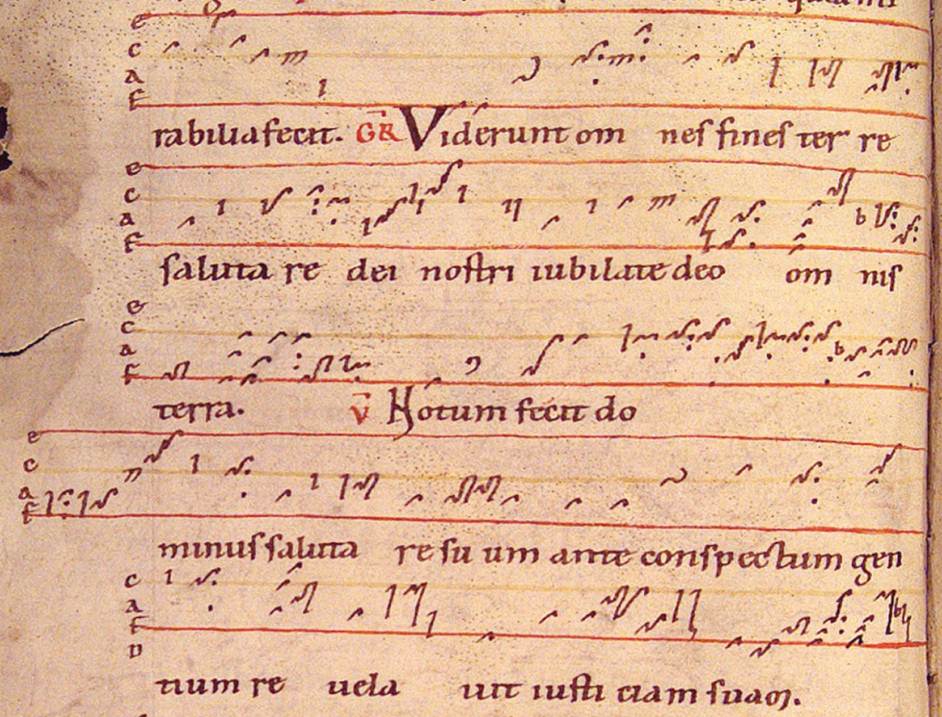 e
c
a
f
rabilia fecit. GR Viderunt om nes fines ter re
e
c
a
f
saluta re dei nostri iubilate deo om nis
e
c
a
f
terra. V Notum fecit do
e
c
a
f
minus saluta re su um ante conspectum gen
c
a
f
D
tium re uela uit iusti ciam suam.